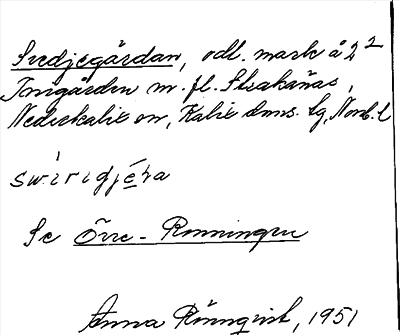 Svedjegärdan, odl. mark å 2²
Tomgården m. fl. Strakanäs,
Nederkalix sn, Kalix dms. tg, Norrb. l
swìridjéra
Se Övre-Ronningen
Anna Rönnqvist, 1951